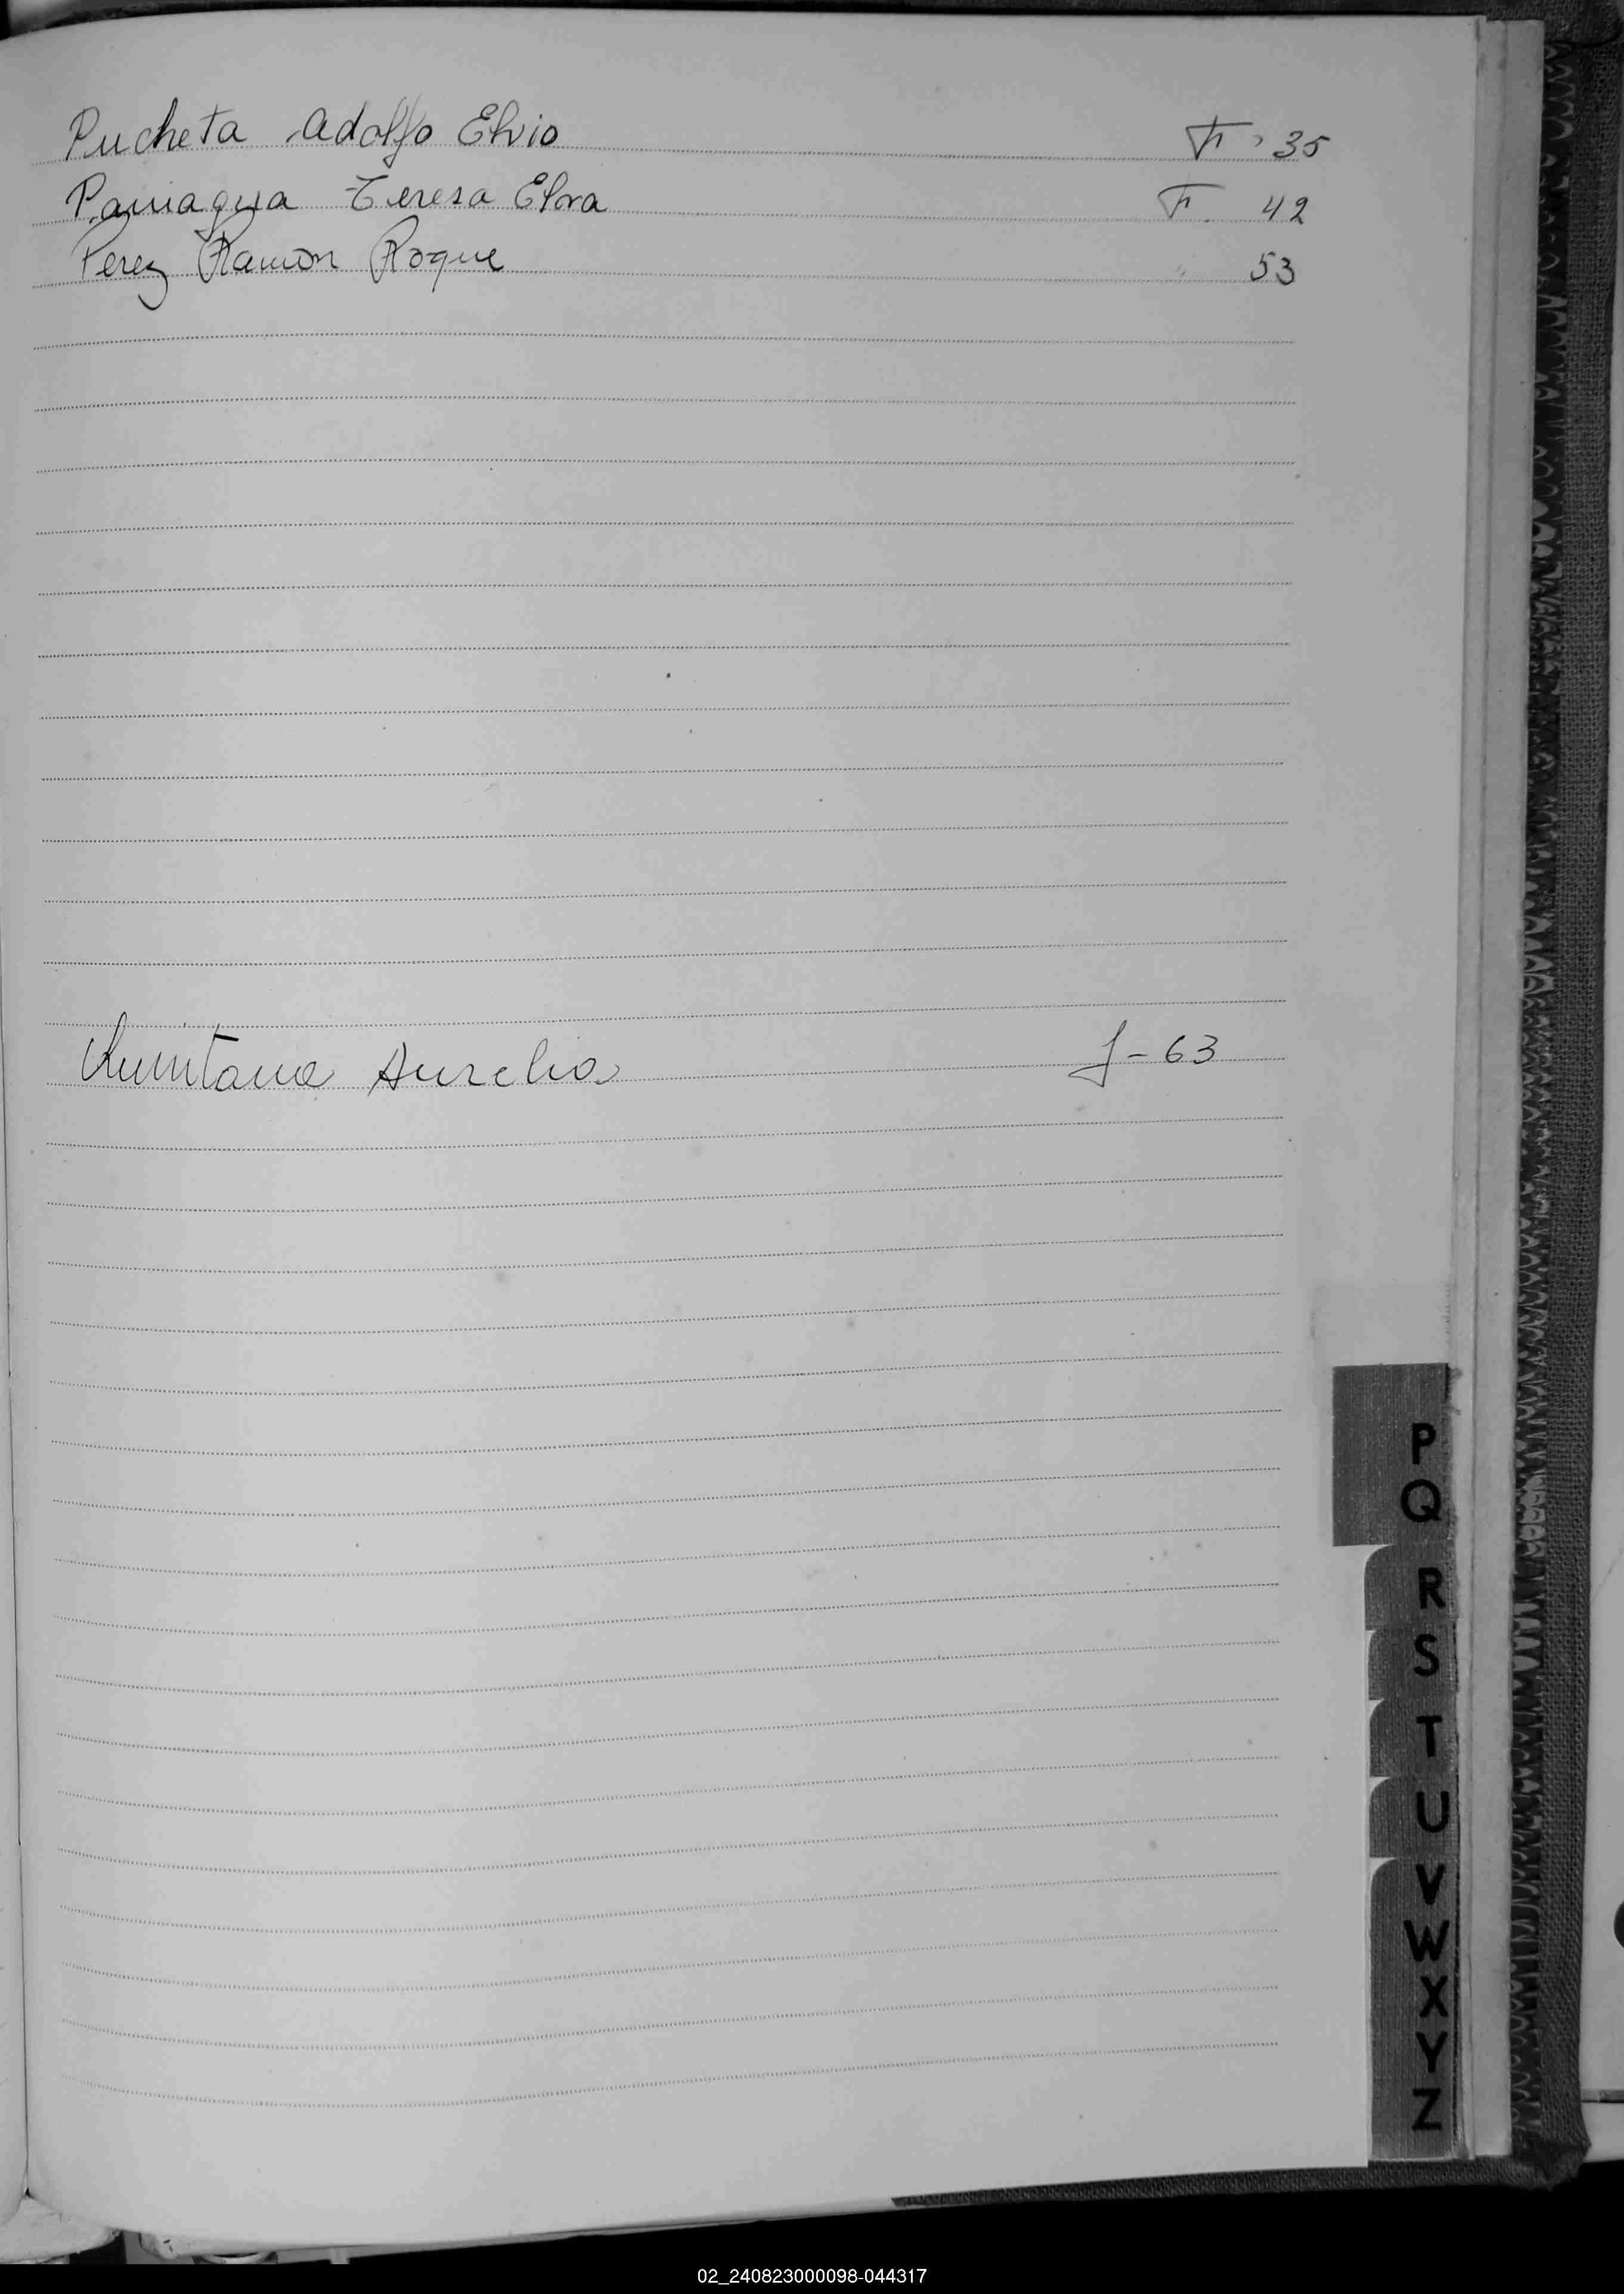 Pucheta Adolfo Elvio F. 35
Paniagua Teresa Elva F. 42
Perez Ramon Roque " 53
Quintana Aurelia f- 63
P
Q
R
S
T
U
V
W
X
Y
Z
02_240823000098-044317